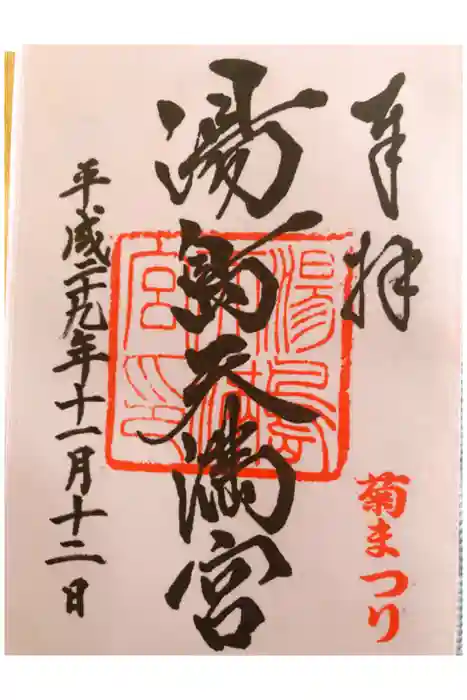 奉拝
菊まつり
湯島天満宮
湯島天満宮印
平成二十九年十一月十二日